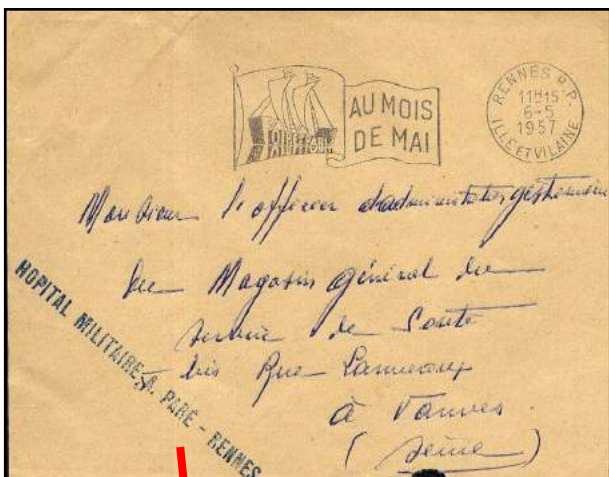 FOIRE DE PARIS
AU MOIS
DE MAI
RENNES R.P.
11H15
6-5
1957
ILLE ET VILAINE
Monsieur l'officier d'administration gestionnaire
du Magasin général du
service de Santé
bis Rue
à Vanves
(Seine)
HOPITAL MILITAIRE A. PARÉ - RENNES